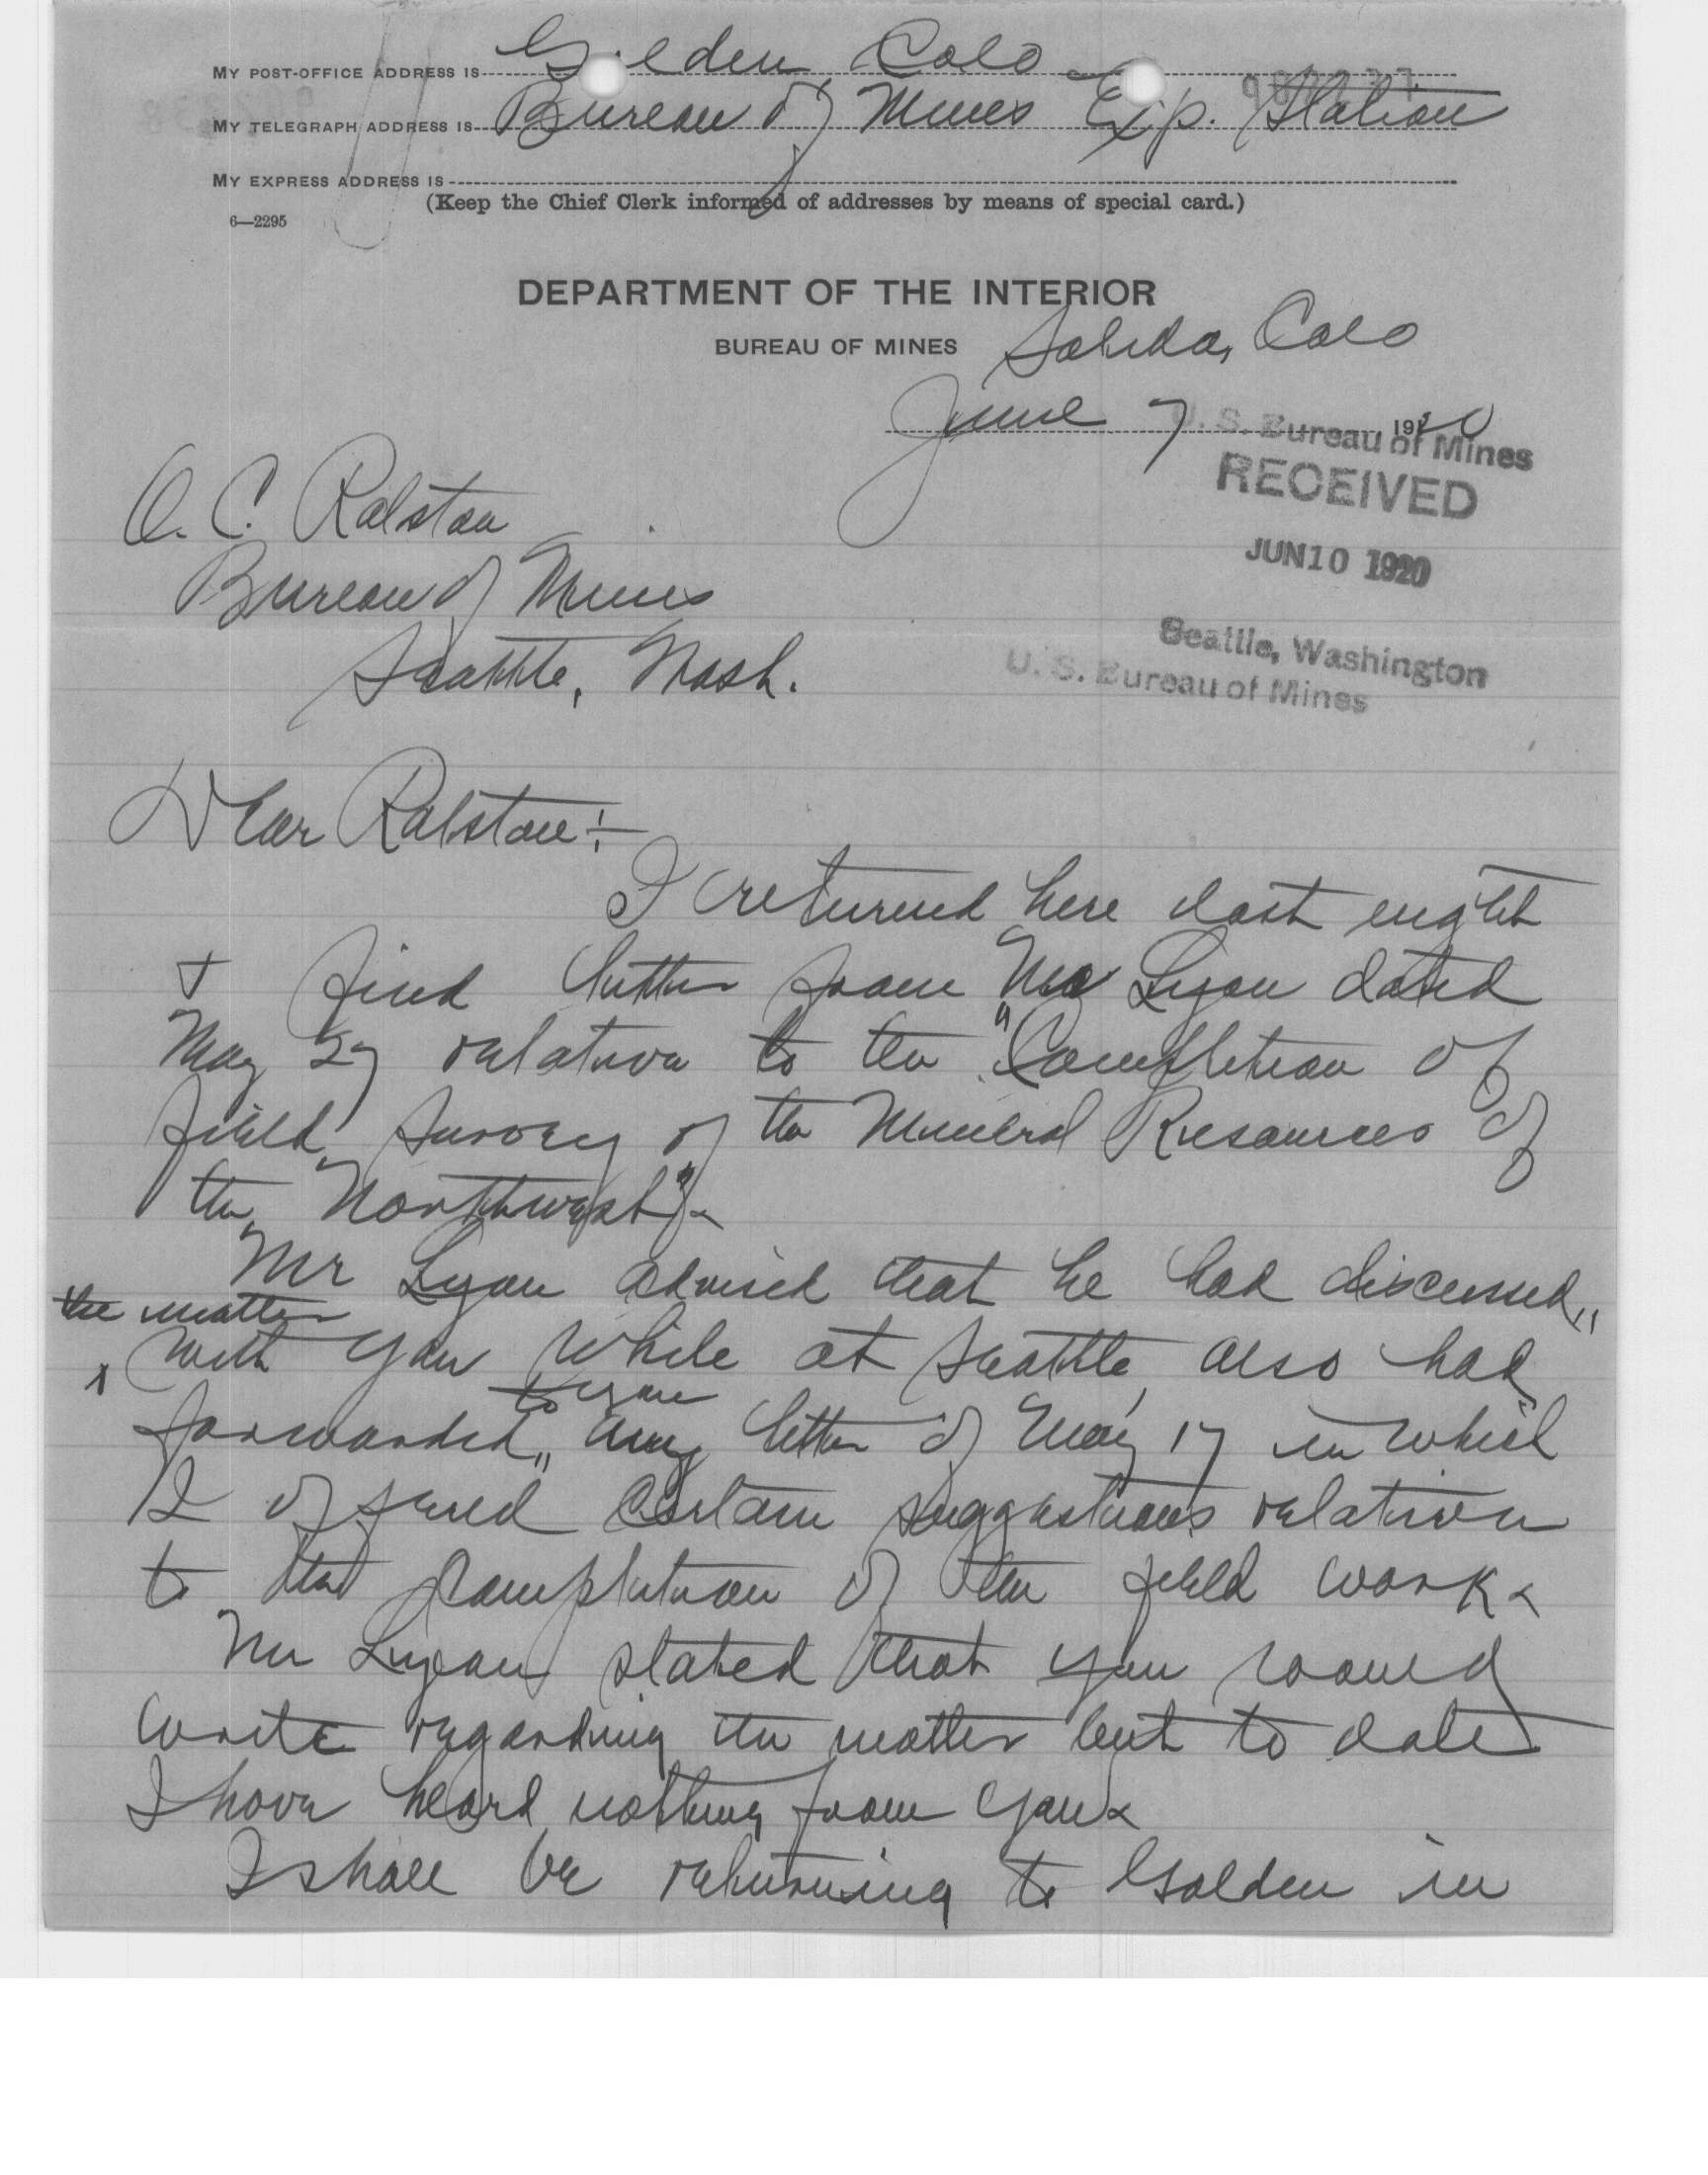 MY POST-OFFICE ADDRESS IS Golden Colo
MY TELEGRAPH ADDRESS IS Bureau of Mines Exp. Station
MY EXPRESS ADDRESS IS
(Keep the Chief Clerk informed of addresses by means of special card.)
6—2295
DEPARTMENT OF THE INTERIOR
BUREAU OF MINES
Salida, Colo
June 7 1920
U. S. Bureau of Mines
RECEIVED
JUN 10 1920
Seattle, Washington
U. S. Bureau of Mines
O. C. Ralston
Bureau of Mines
Seattle, Wash.
Dear Ralston:-
I returned here last night
+ find letter from Mr Lyon dated
May 27 relative to the "Completion of
field survey of the Mineral Resources of
the Northwest".
Mr Lyon advised that he had discussed
the matter
with you while at Seattle, also had
to you
forwarded my letter of May 17 in which
I offered certain suggestions relative
to the completion of the field work.
Mr Lyon stated that you would
write regarding the matter but to date
I have heard nothing from you.
I shall be returning to Golden in